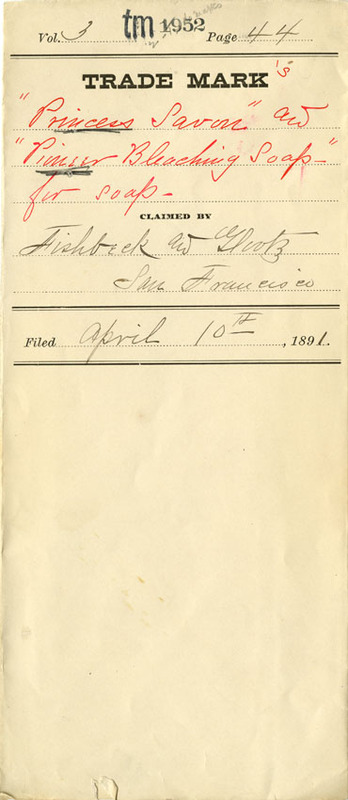 Vol. 3 tm 1952 Page 44
TRADE MARK's
"Princess Savon" and
"Pioneer Bleaching Soap"
for soap
CLAIMED BY
Fishbeck and Glootz
San Francisco
Filed April 10th, 1891.